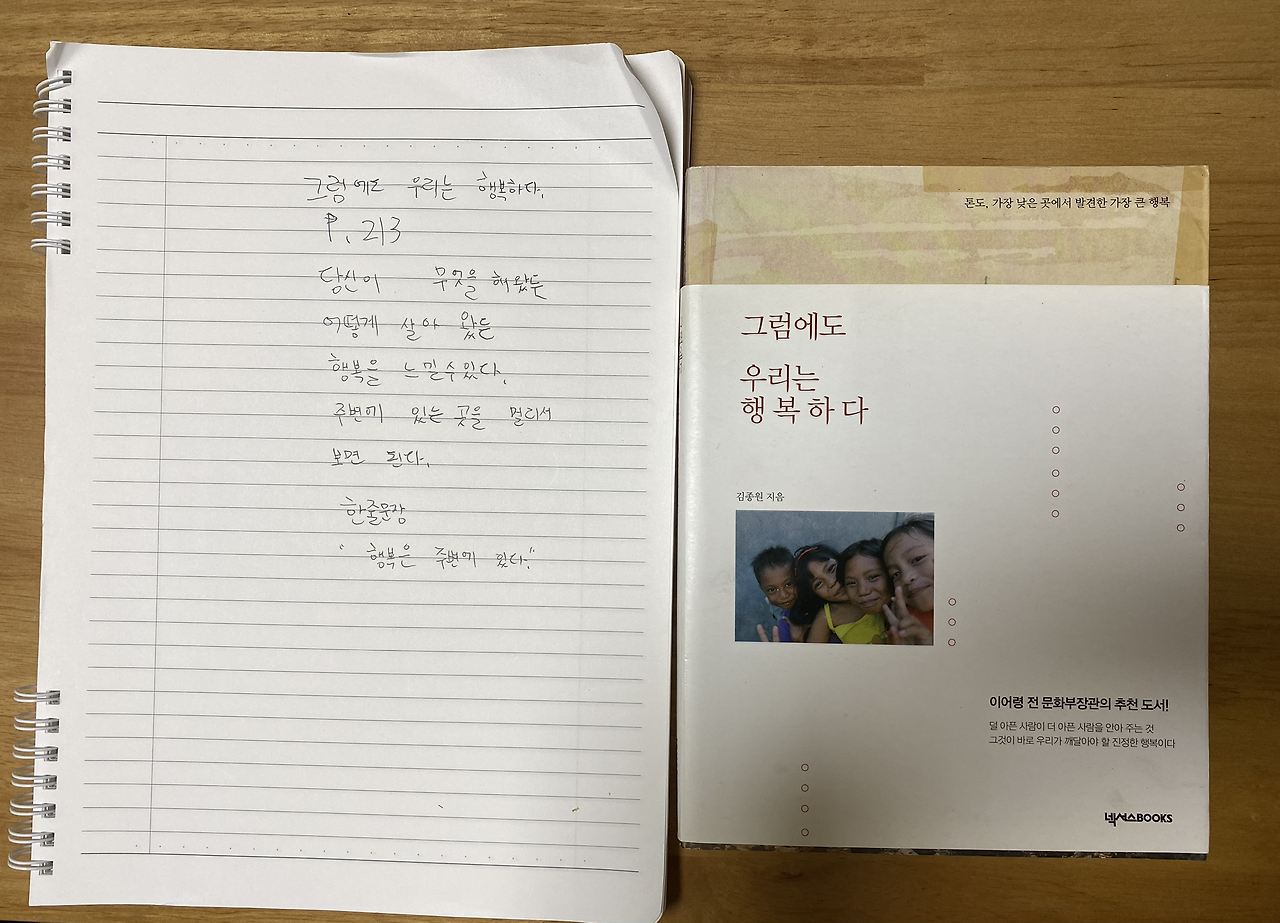 그럼에도 우리는 행복하다.
P. 213
당신이 무엇을 해왔든
어떻게 살아 왔든
행복을 느낄수있다.
주변에 있는 곳을 멀리서
보면 된다.
한줄문장
"행복은 주변에 있다."
톤도, 가장 낮은 곳에서 발견한 가장 큰 행복
그럼에도
우리는
행복하다
김종원 지음
이어령 전 문화부장관의 추천 도서!
덜 아픈 사람이 더 아픈 사람을 안아 주는 것
그것이 바로 우리가 깨달아야 할 진정한 행복이다
넥서스BOOKS